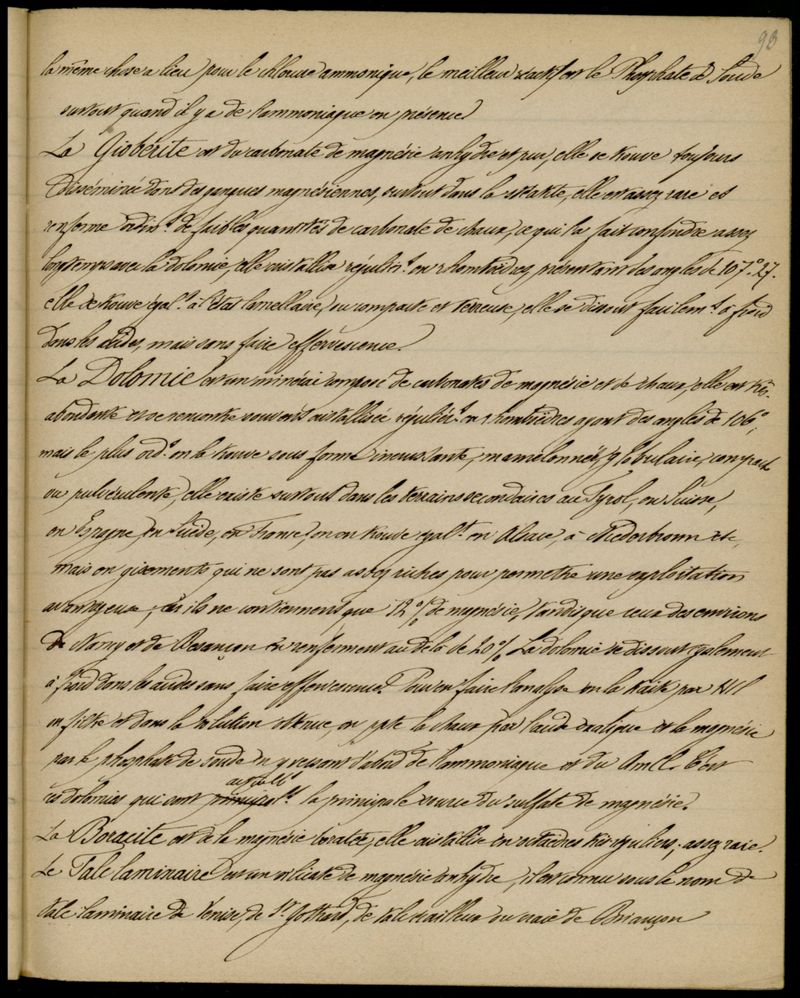 93
la même chose a lieu pour le chlorure ammonique, le meilleur réactif est le Phosphate de Soude
surtout quand il y a de l'ammoniaque en présence
La Giobérite est du carbonate de magnésie anhydre et pur, elle se trouve toujours
disséminée dans des gangues magnésiennes, surtout dans la stéatite, elle est assez rare et
renferme ordint. de faibles quantités de carbonate de chaux, ce qui la fait confondre assez
longtemps avec la dolomie, elle cristallise régulièrt. en rhomboèdres, présentant des angles de 107°.27.
elle se trouve égalt. à l'état lamellaire, ou compacte et terreuse, elle se dissout facilemt. à froid
dans les acides, mais sans faire effervescence.
La Dolomie est un minérai composé de carbonates de magnésie et de chaux, elle est très
abondante et se rencontre souvent cristallisée régulièrt. en rhomboèdres ayant des angles de 106°,
mais le plus ordt. on la trouve sous forme incrustante, mamelonnée, globulaire, compacte
ou pulvérulente, elle existe surtout dans les terrains secondaires au Tyrol, en Suisse,
en Espagne, en Suède, en France, on en trouve égalt. en Alsace, à Niederbronn etc,
mais en gisements qui ne sont pas assez riches pour permettre une exploitation
avantageuse, car ils ne contiennent que 12% de magnésie, tandis que ceux des environs
de Nancy et de Besançon en renferment au delà de 20%. La dolomie se dissout également
à froid dans les acides sans faire effervescence. Pour en faire l'analyse on la traite par HCl
on filtre et dans la solution obtenue, on ppte la chaux par l'acide oxalique et la magnésie
par le phosphate de soude en y versant d'abord de l'ammoniaque et du AmCl. C'est
actuellt.
ces dolomies qui sont principalt. la principale source du sulfate de magnésie.
La Boracite est de la magnésie boratée, elle cristallise en octaèdres très réguliers, assez rare.
Le Talc laminaire est un silicate de magnésie anhydre, il est connu sous le nom de
talc laminaire de Venise, de St. Gothard, de talc écailleux ou craie de Briançon